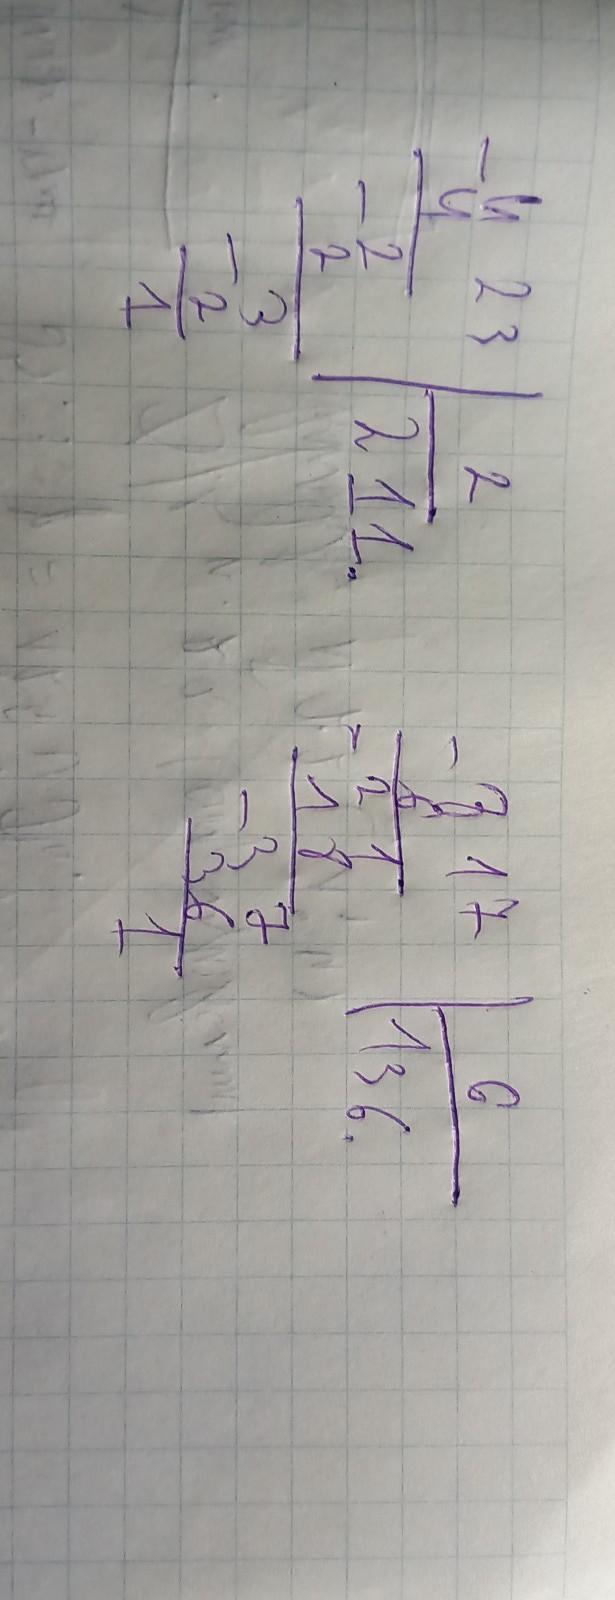 -423 | 2
4 | 211.
-2
2
-3
2
1
-817 | 6
6 | 136.
-21
18
-37
36
1